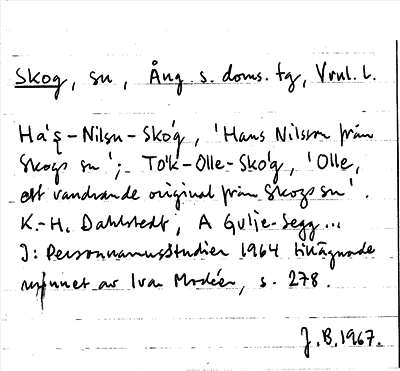 Skog, sn, Ång. s. doms. tg, Vrnl. l.
Ha's̨-Nilsn-Skó'g, 'Hans Nilsson från
Skogs sn'; To'k-Olle-Skó'g, 'Olle,
ett vandrande original från Skogs sn'.
K.-H. Dahlstedt, A Gulje-Segg...
I: Personnamnsstudier 1964 tillägnade
minnet av Ivar Modéer, s. 278.
J. B. 1967.